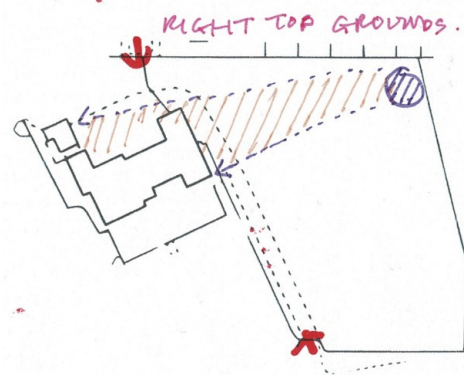 RIGHT TOP GROUNDS.